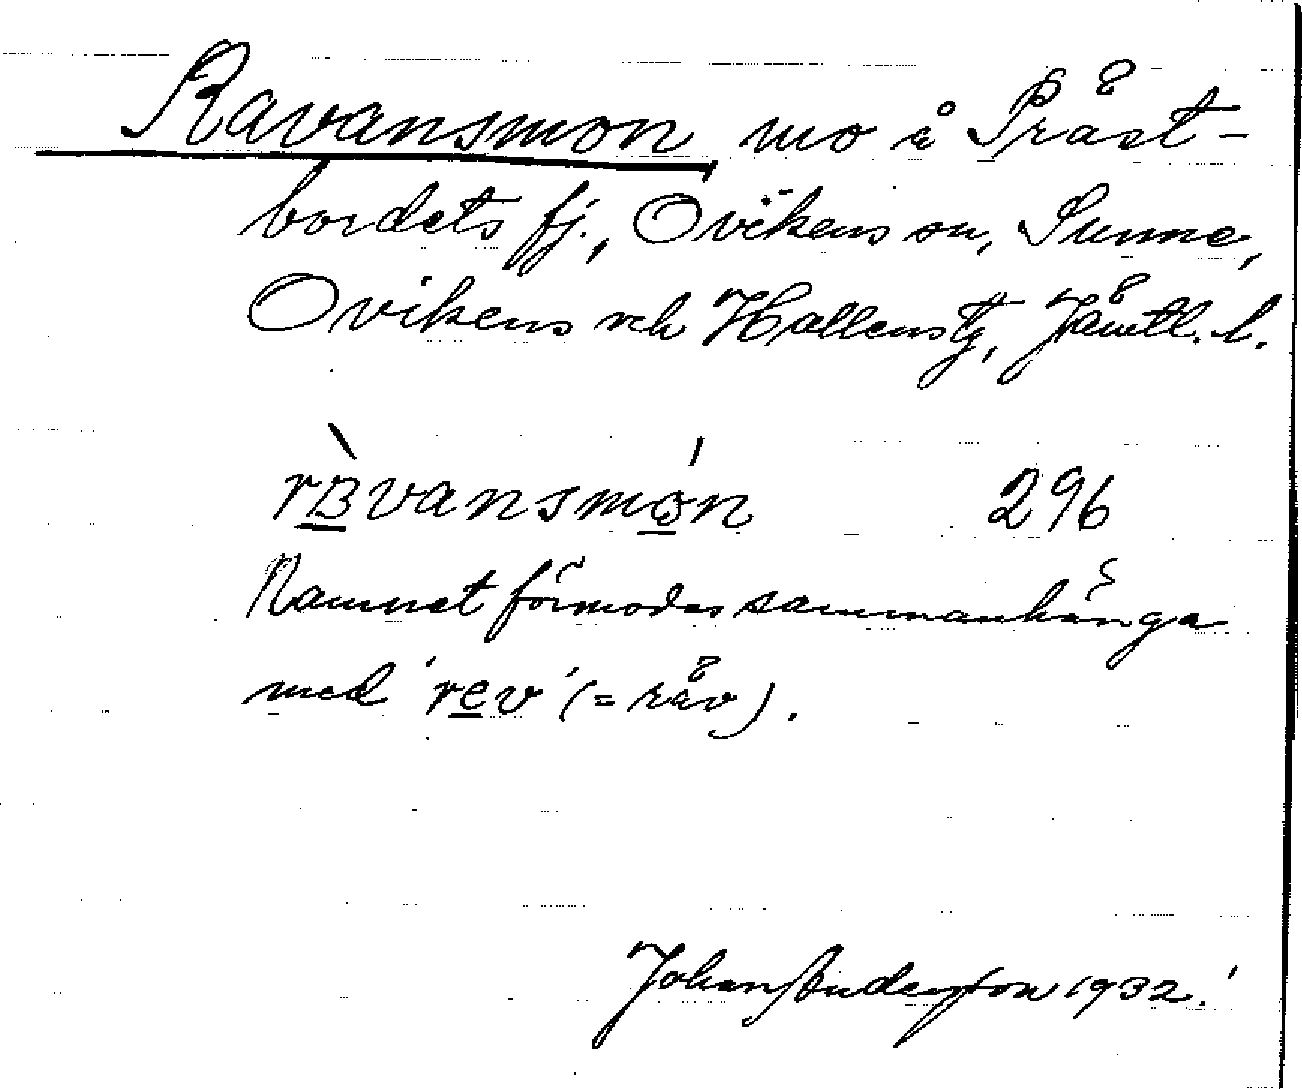 Ravansmon mo å Präst-
bordets fj., Ovikens sn, Sunne,
Ovikens och Hallens tg, Jämtl. l.
rʙ̀vansmón 296
Namnet förmodas sammanhänga
med 'rev' (= räv).
Johan Anderson 1932.